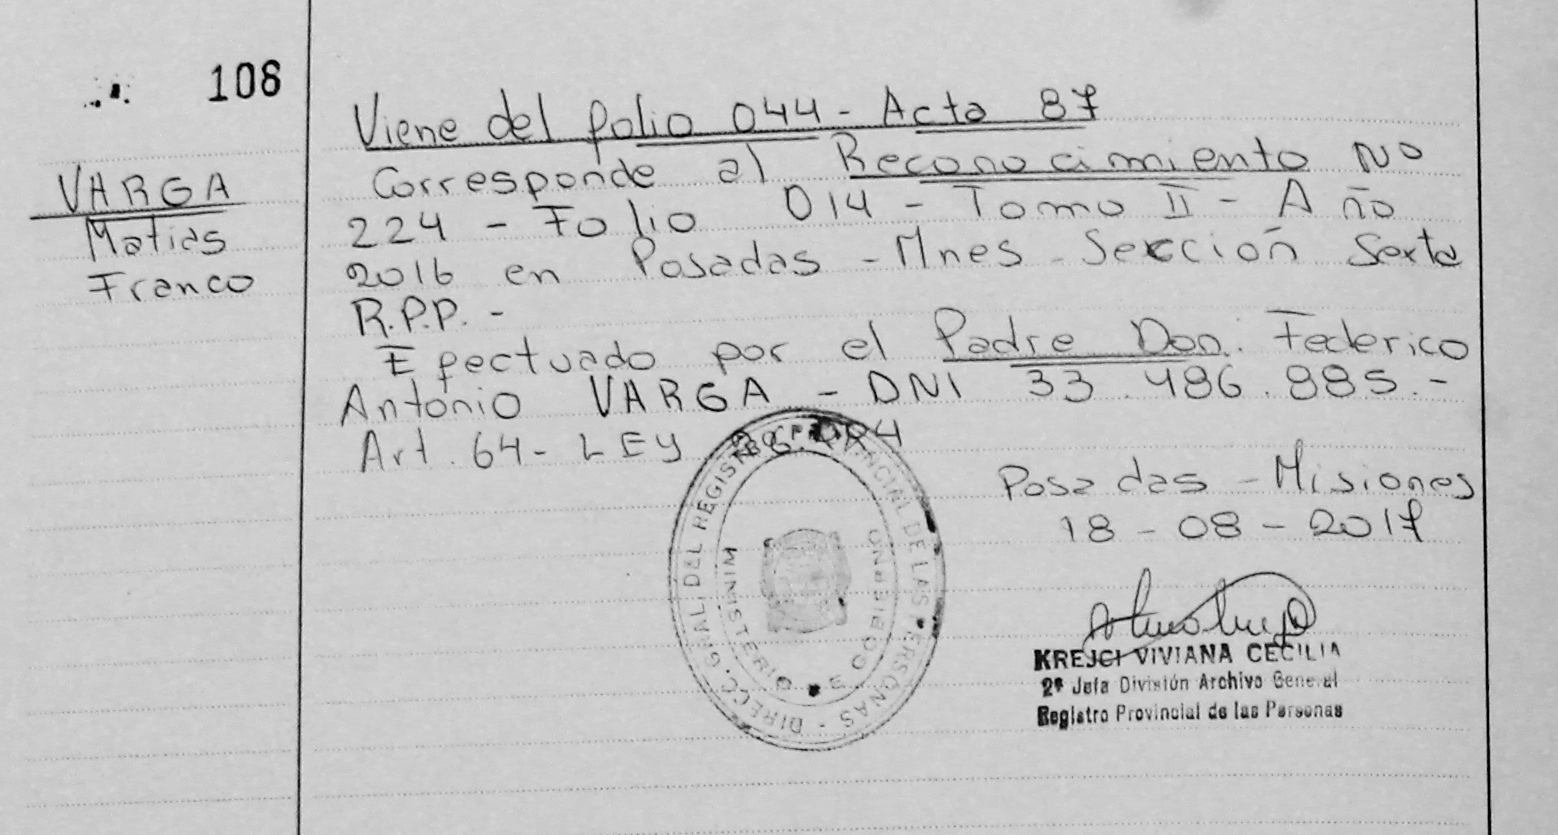 108
VARGA
Matias
Franco
Viene del folio 044 - Acta 87
Corresponde al Reconocimiento No
224 - Folio 014 - Tomo II - Año
2016 en Posadas - Mnes - Sección Sexta
R.P.P. -
Efectuado por el Padre Don. Federico
Antonio VARGA - DNI 33.486.885.-
Art. 64 - LEY
Posadas - Misiones
18 - 08 - 2017
KREJCI VIVIANA CECILIA
2ª Jefa División Archivo General
Registro Provincial de las Personas
DIRECC. GRAL. DEL REGISTRO PROVINCIAL DE LAS PERSONAS -
MINISTERIO